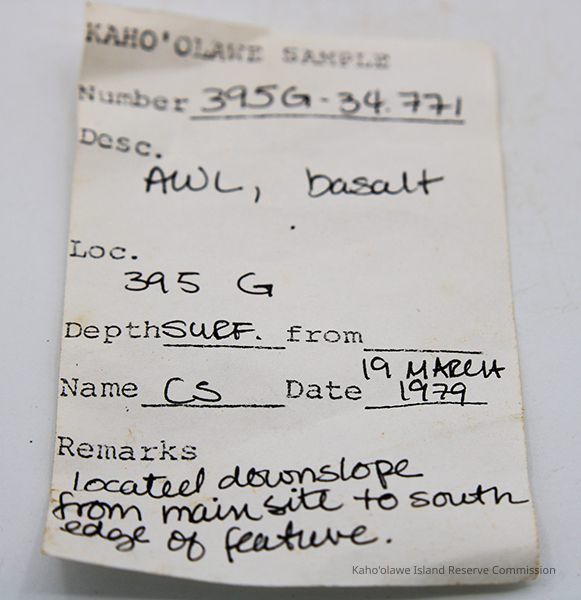 KAHO'OLAWE SAMPLE
Number 395G-34.771
Desc.
AWL, basalt
Loc.
395 G
Depth SURF. from
Name CS Date 19 MARCH 1979
Remarks
located downslope
from main site to south
edge of feature.
Kaho'olawe Island Reserve Commission